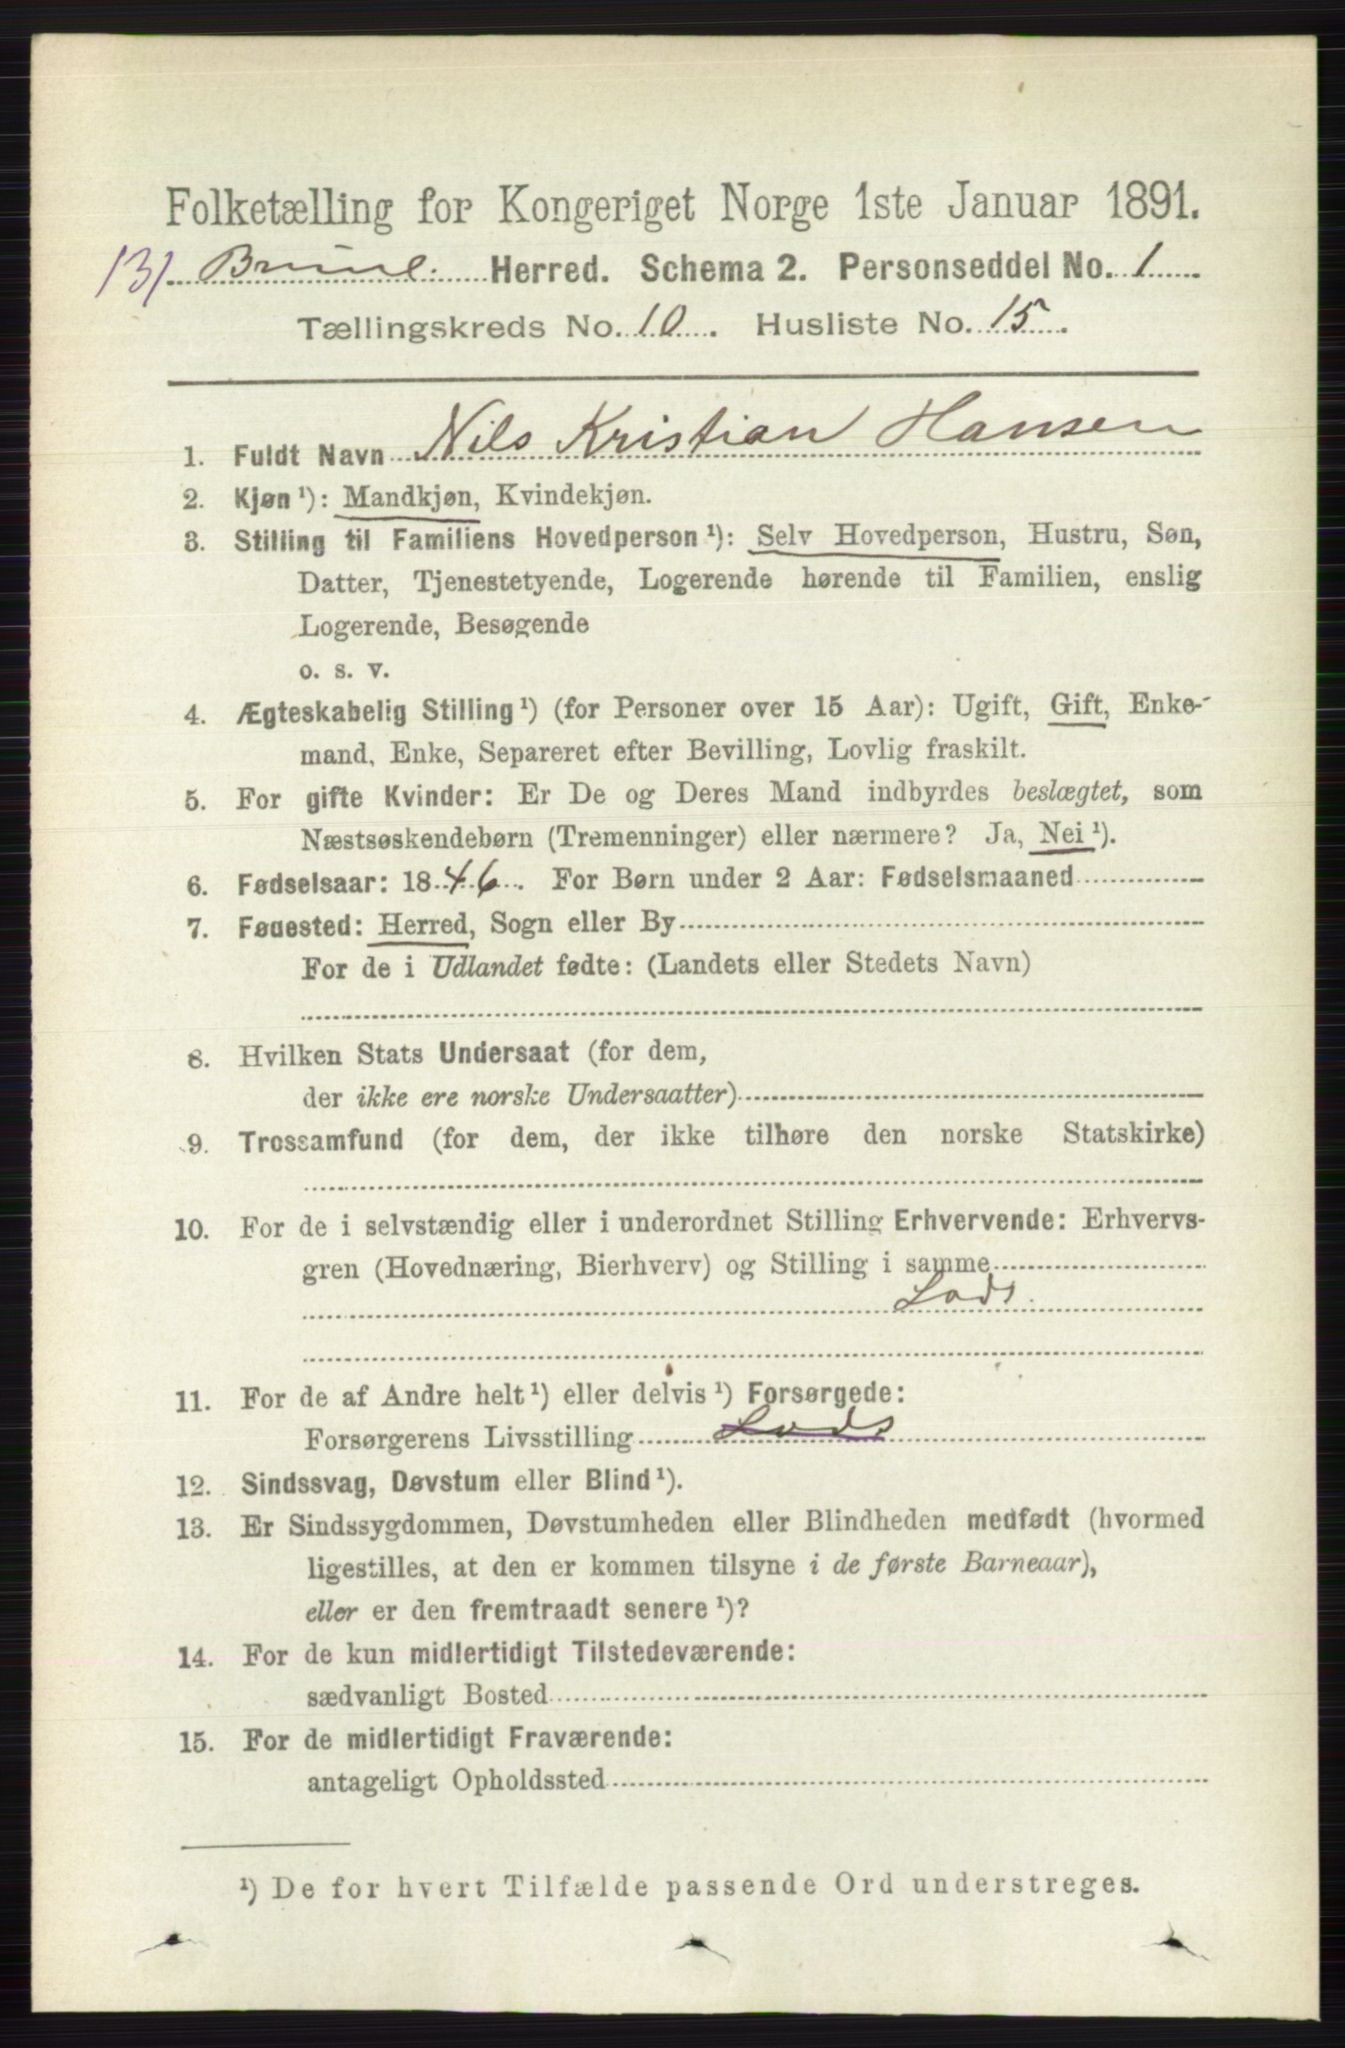 Folketælling for Kongeriget Norge 1ste Januar 1891.
131 Brunl. Herred. Schema 2. Personseddel No. 1
Tællingskreds No. 10. Husliste No. 15.
1. Fuldt Navn Nils Kristian Hansen
2. Kjøn ¹): Mandkjøn, Kvindekjøn.
3. Stilling til Familiens Hovedperson ¹): Selv Hovedperson, Hustru, Søn,
Datter, Tjenestetyende, Logerende hørende til Familien, enslig
Logerende, Besøgende
o. s. v.
4. Ægteskabelig Stilling ¹) (for Personer over 15 Aar): Ugift, Gift, Enke-
mand, Enke, Separeret efter Bevilling, Lovlig fraskilt.
5. For gifte Kvinder: Er De og Deres Mand indbyrdes beslægtet, som
Næstsøskendebørn (Tremenninger) eller nærmere? Ja, Nei ¹).
6. Fødselsaar: 1846. For Børn under 2 Aar: Fødselsmaaned
7. Føuested: Herred, Sogn eller By
For de i Udlandet fødte: (Landets eller Stedets Navn)
8. Hvilken Stats Undersaat (for dem,
der ikke ere norske Undersaatter)
9. Trossamfund (for dem, der ikke tilhøre den norske Statskirke)
10. For de i selvstændig eller i underordnet Stilling Erhvervende: Erhvervs-
gren (Hovednæring, Bierhverv) og Stilling i samme
Lods.
11. For de af Andre helt ¹) eller delvis ¹) Forsørgede:
Forsørgerens Livsstilling Lods
12. Sindssvag, Døvstum eller Blind ¹).
13. Er Sindssygdommen, Døvstumheden eller Blindheden medfødt (hvormed
ligestilles, at den er kommen tilsyne i de første Barneaar),
eller er den fremtraadt senere ¹)?
14. For de kun midlertidigt Tilstedeværende:
sædvanligt Bosted
15. For de midlertidigt Fraværende:
antageligt Opholdssted
¹) De for hvert Tilfælde passende Ord understreges.